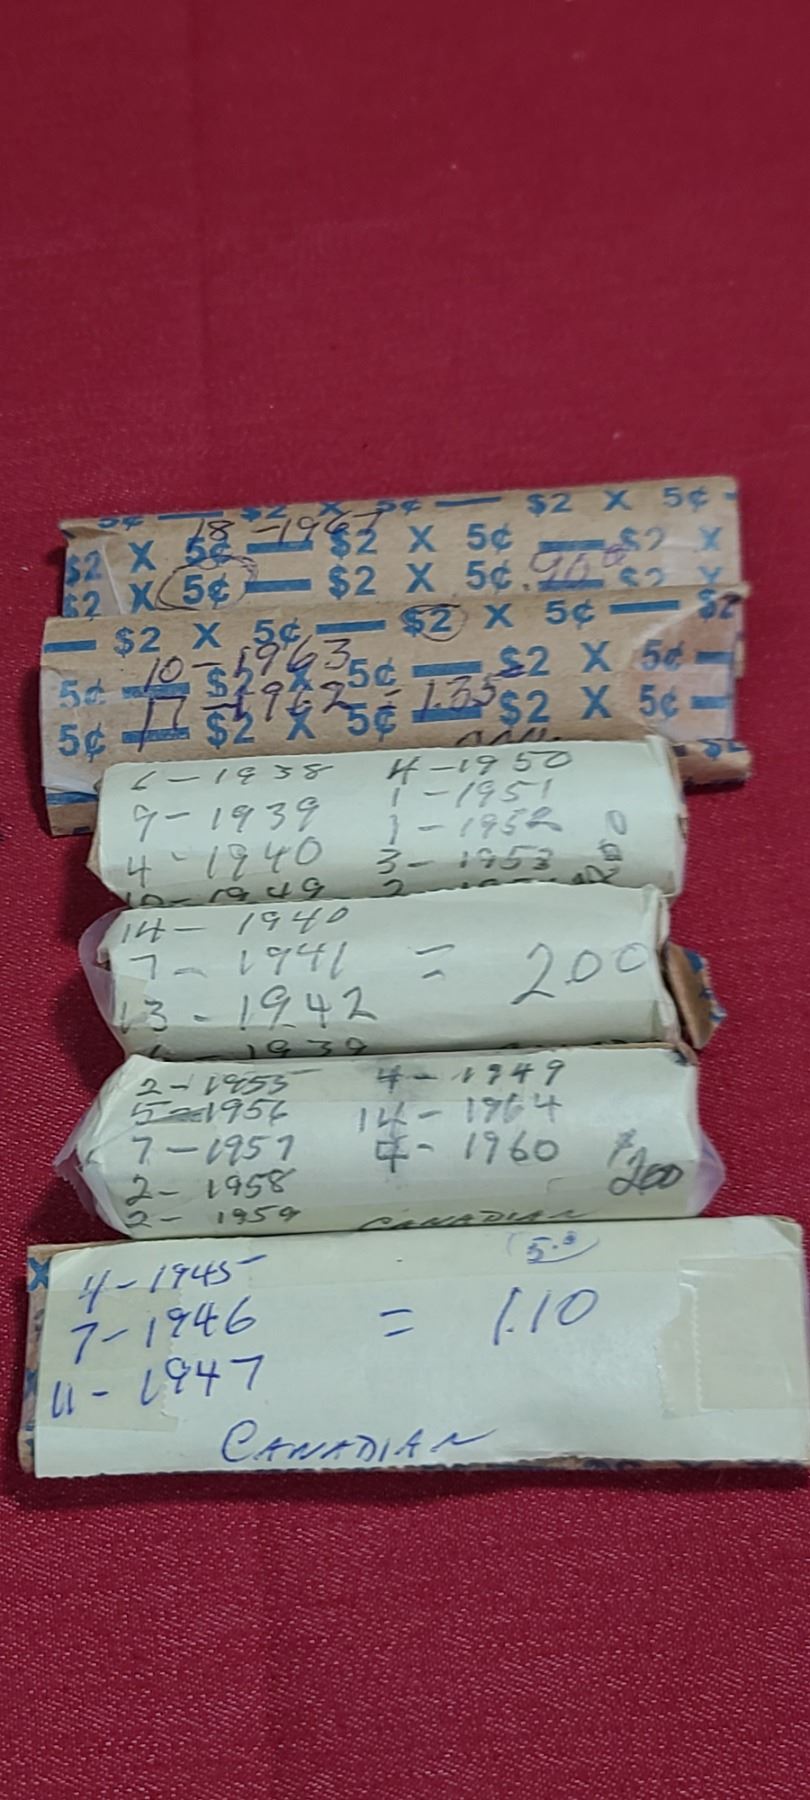 5¢ — $2 X 5¢ — $2 X 5¢ -
18 - 1967
$2 X 5¢ — $2 X 5¢ — $2 X
$2 X 5¢ — $2 X 5¢ .90 $2 X
— $2 X 5¢ — $2 X 5¢ — $2
10 - 1963
5¢ — $2 X 5¢ — $2 X 5¢ —
17 - 1962 = 1.35
5¢ — $2 X 5¢ — $2 X 5¢ —
6 - 1938 4 - 1950
9 - 1939 1 - 1951
1 - 1952
4 - 1940 3 - 1953
10 - 1949 2
14 - 1940
7 - 1941 = 200
13 - 1942
6 - 1939
2 - 1955 4 - 1949
5 - 1956 14 - 1964
7 - 1957 4 - 1960 $200
2 - 1958
2 - 1959 CANADIAN
4 - 1945
7 - 1946 = 1.10
11 - 1947
CANADIAN